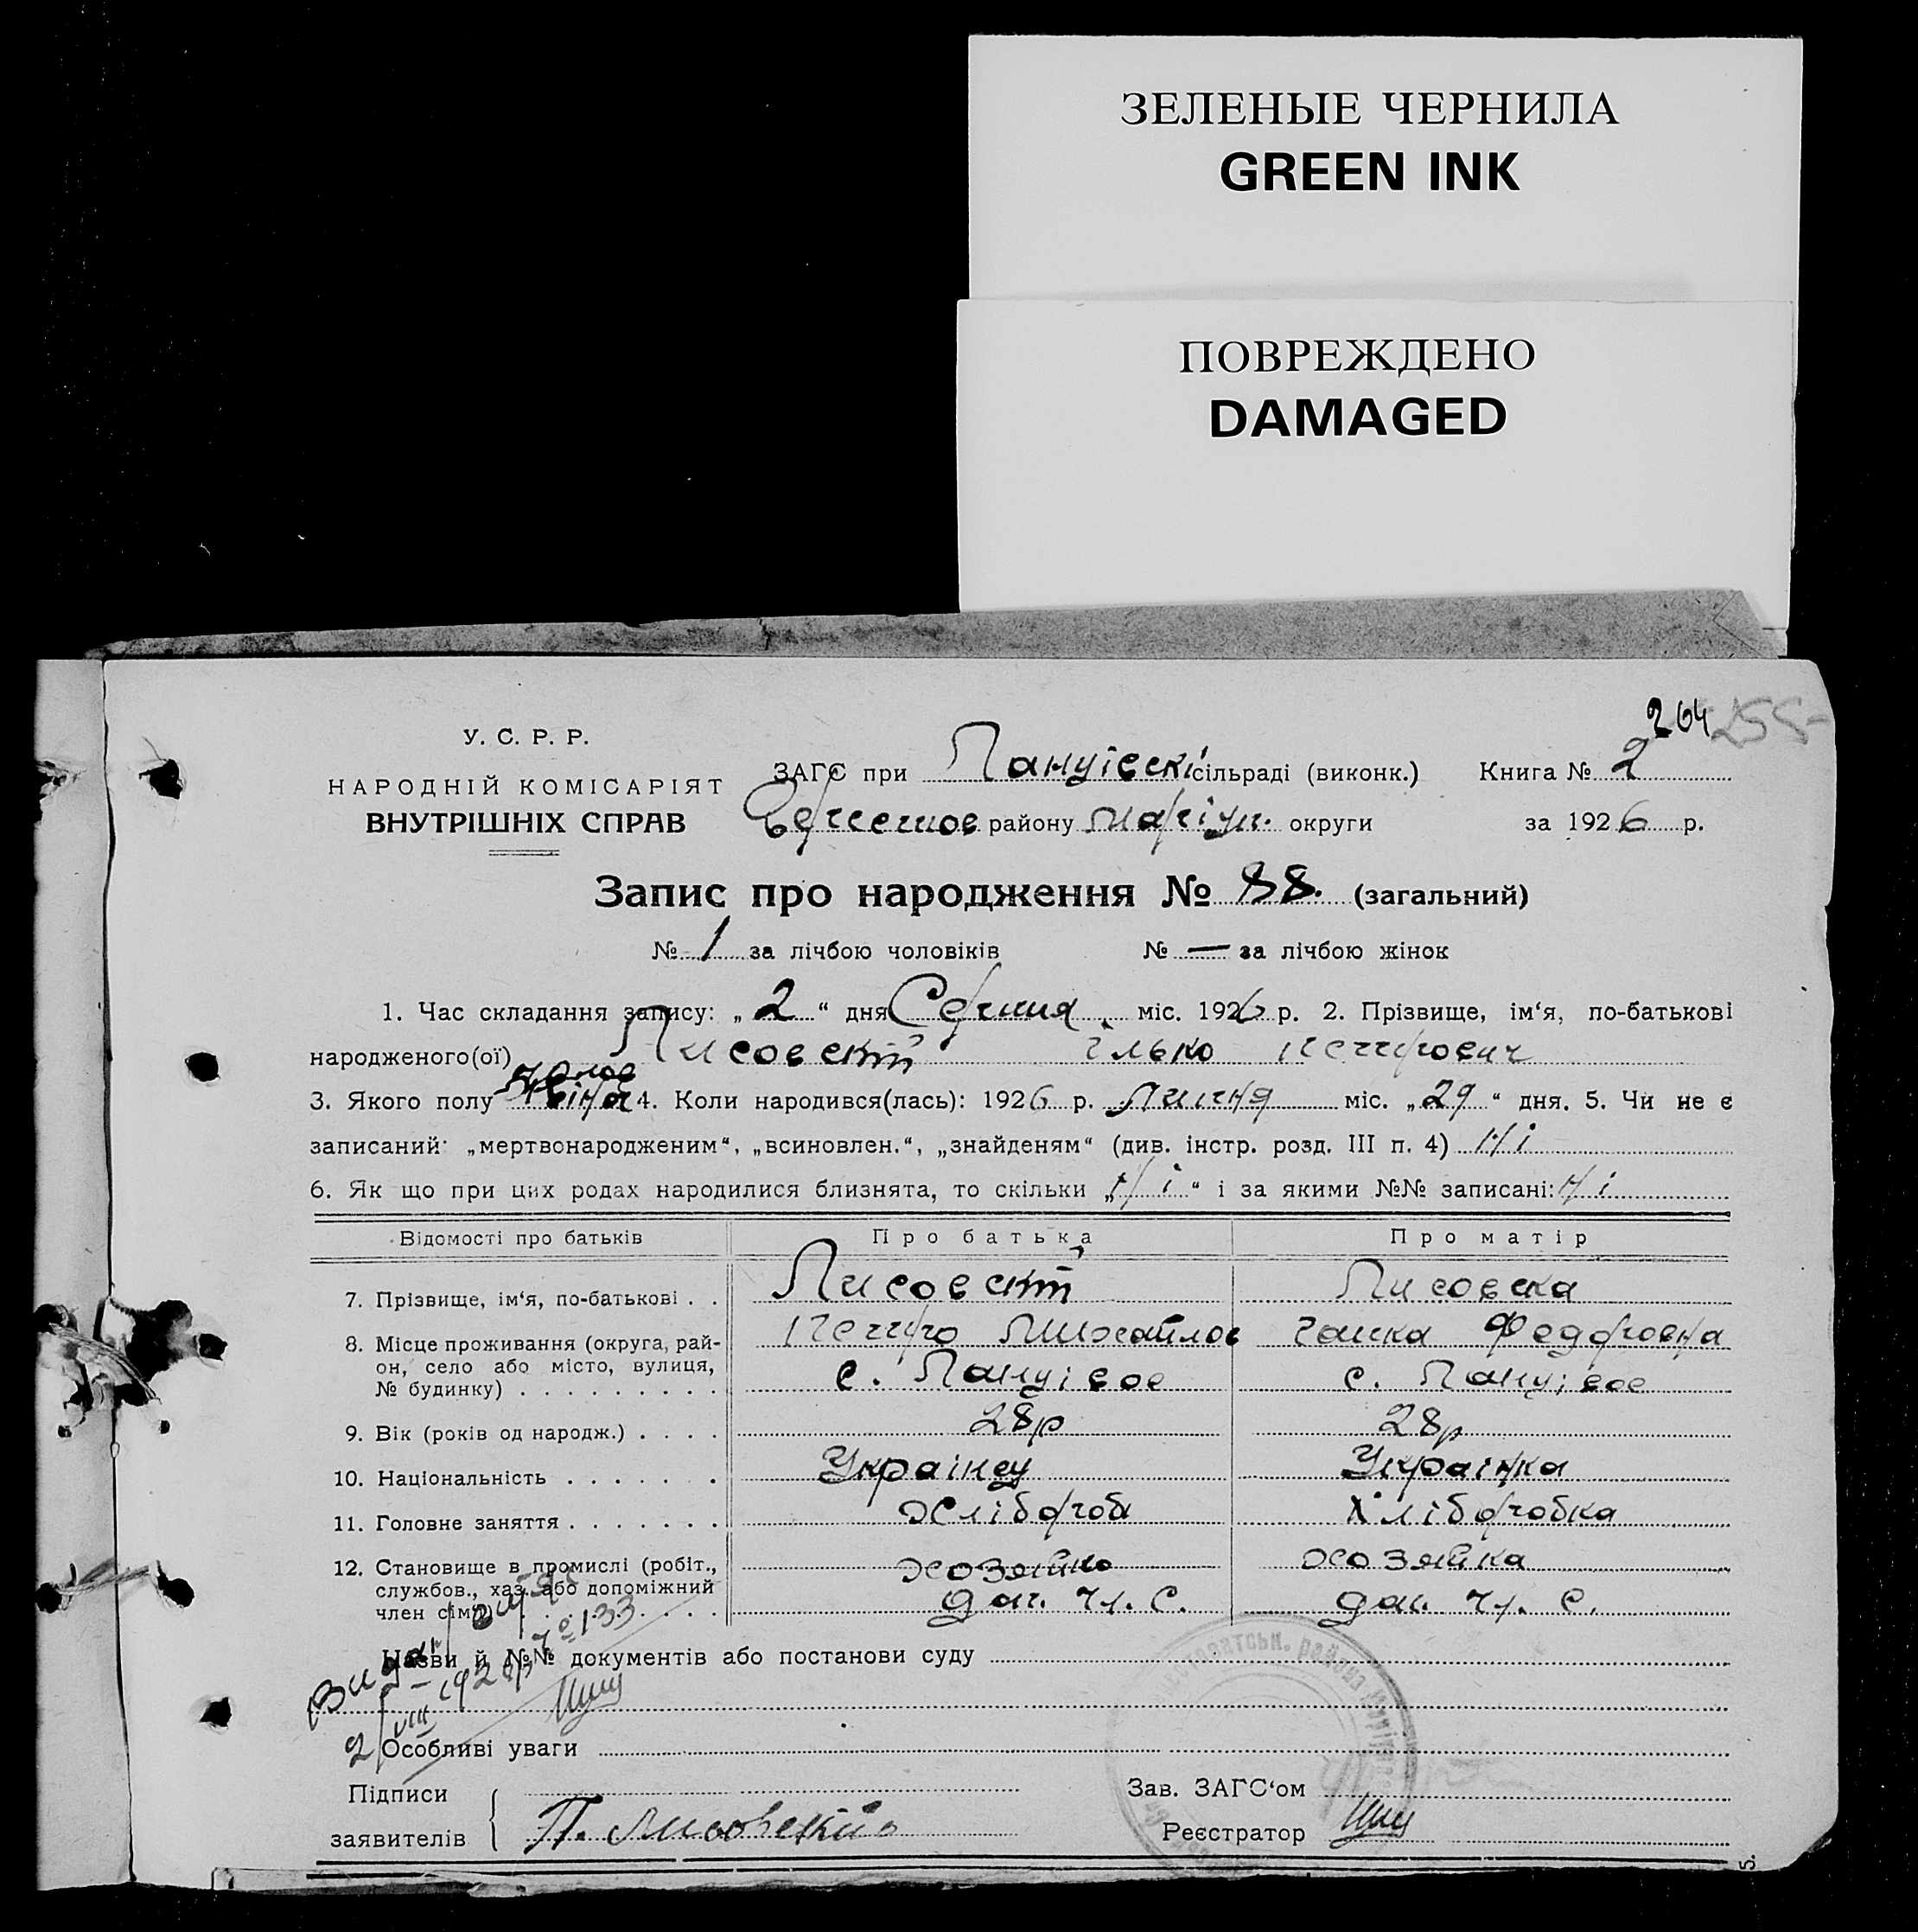 ЗЕЛЕНЫЕ ЧЕРНИЛА
GREEN INK
ПОВРЕЖДЕНО
DAMAGED
204 255
У. С. Р. Р.
НАРОДНІЙ КОМІСАРІЯТ
ВНУТРІШНІХ СПРАВ
ЗАГС при сільраді (виконк.) Книга № 2
району Маріуп. округи за 1926 р.
Запис про народження № 88. (загальний)
№ 1 за лічбою чоловіків № — за лічбою жінок
1. Час складання запису: „2“ дня Серпня міс. 1926 р. 2. Прізвище, ім‘я, по-батькові
народженого(ої) Лисовский Ілько Петрович
3. Якого полу 4. Коли народився(лась): 1926 р. Липня міс. „29“ дня. 5. Чи не є
записаний: „мертвонародженим“, „всиновлен.“, „знайденям“ (див. інстр. розд. III п. 4) Ні
6. Як що при цих родах народилися близнята, то скільки „Ні“ і за якими №№ записані: Ні
Відомості про батьків Про батька Про матір
7. Прізвище, ім‘я, по-батькові . . Лисовский Лисовска
Петро Михайлов Ганка Федоровна
8. Місце проживання (округа, рай-
он, село або місто, вулиця,
№ будинку) . . . . . . . . . с. с.
9. Вік (років од народж.) . . . . 28р 28р
10. Національність . . . . . . . Українец Українка
11. Головне заняття . . . . . . . Хлібороб Хліборобка
12. Становище в промислі (робіт.,
службов., хаз. або допоміжний
член сім‘ї) хозяйка
С. С.
Назви й №№ документів або постанови суду
№ 133
2/VIII 1926р
Особливі уваги
Підписи
заявителів П. Лисовский
Зав. ЗАГС‘ом
Реєстратор
5.